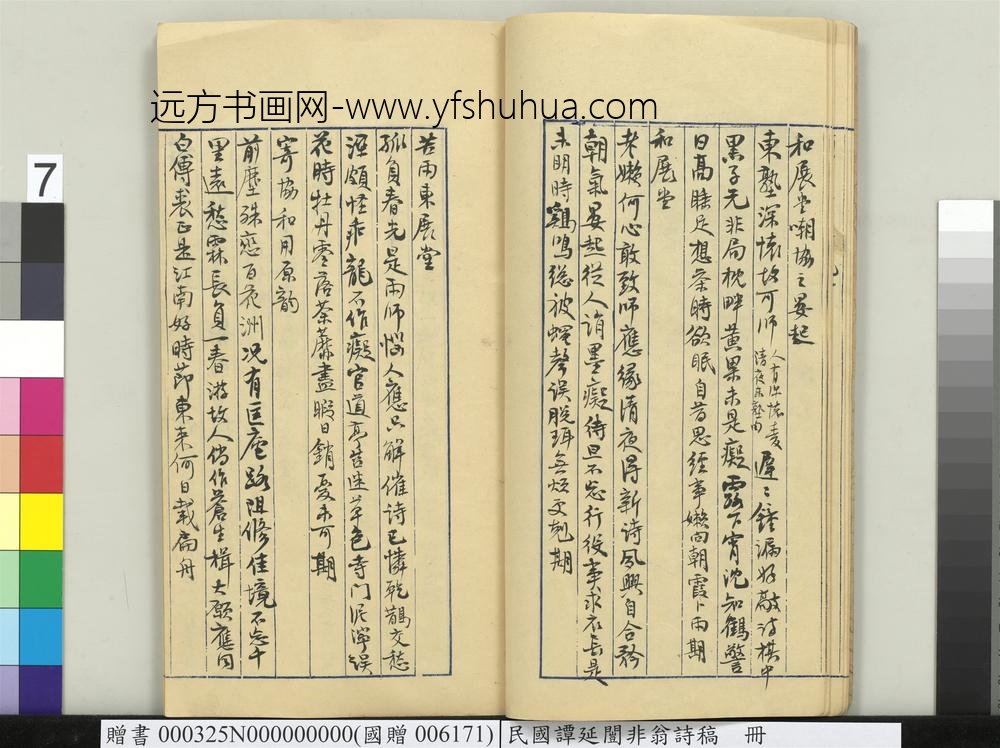 远方书画网-www.yfshuhua.com
7
和展堂嘲協之晏起
東塾深懷故可師 遲〻鐘漏好敲詩棋中
黑子元非局枕畔黃粱未是癡露下宵沈知鶴警
日高睡足想茶時欲眠自昔思經事嬾向朝霞卜雨期
和展堂
老嬾何心敢致師應緣清夜得新詩夙興自合矜
朝氣晏起從人誚墨癡待旦不忘行役事求衣長是
未明時雞鳴總被蠅聲誤脫珥無煩更刻期
苦雨柬展堂
孤負春光是雨師惱人應只解催詩已憐乾鵲交愁
溼頗怪乖龍不作癡官道亭迷草色寺門泥濘誤
花時牡丹零落荼蘼盡暇日銷憂未可期
寄協和用原韵
前塵殊戀百花洲況有匡廬路阻修佳境不忘十
里遠愁霖長負一春游故人倘作蒼生楫大願應同
白傅裘正是江南好時節東來何日載扁舟
贈書 000325N000000000(國贈 006171)
民國譚延闓非翁詩稿 冊